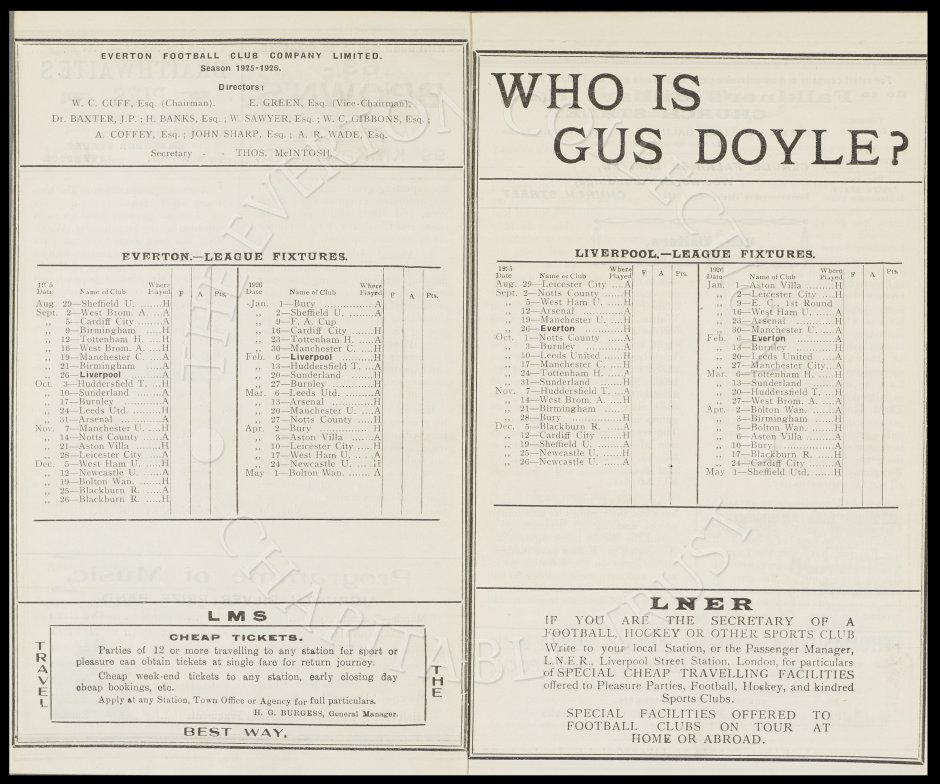 EVERTON FOOTBALL CLUB COMPANY LIMITED.
Season 1925-1926.
Directors:
W. C. CUFF, Esq. (Chairman). E. GREEN, Esq. (Vice-Chairman).
Dr. BAXTER, J.P.; H. BANKS, Esq.; W. SAWYER, Esq.; W. C. GIBBONS, Esq.;
A. COFFEY, Esq.; JOHN SHARP, Esq.; A. R. WADE, Esq.
Secretary - - THOS. McINTOSH.
EVERTON.—LEAGUE FIXTURES.
1925 Date Name of Club Where Played F A Pts.
Aug. 29—Sheffield U. ......H
Sept. 2—West Brom. A. ...A
,, 5—Cardiff City ........A
,, 9—Birmingham ......H
,, 12—Tottenham H. ....H
,, 16—West Brom. A. ...H
,, 19—Manchester C. ...A
,, 21—Birmingham ......A
,, 26—Liverpool ..........A
Oct. 3—Huddersfield T. ...H
,, 10—Sunderland .......A
,, 17—Burnley ............A
,, 24—Leeds Utd. ........H
,, 31—Arsenal .............A
Nov. 7—Manchester U. ...H
,, 14—Notts County ......A
,, 21—Aston Villa ........H
,, 28—Leicester City .....A
Dec. 5—West Ham U. .....H
,, 12—Newcastle U. ......A
,, 19—Bolton Wan. ......H
,, 25—Blackburn R. .....A
,, 26—Blackburn R. .....H
1926 Name of Club Where Played F A Pts.
Jan. 1—Bury ...............A
,, 2—Sheffield U. ........A
,, 9—F. A. Cup
,, 16—Cardiff City ........H
,, 23—Tottenham H. .....A
,, 30—Manchester C. ....H
Feb. 6—Liverpool ..........H
,, 13—Huddersfield T. ...A
,, 20—Sunderland ........H
,, 27—Burnley ............H
Mar. 6—Leeds Utd. ........A
,, 13—Arsenal .............H
,, 20—Manchester U. ....A
,, 27—Notts County ......H
Apr. 2—Bury ...............H
,, 3—Aston Villa ........A
,, 10—Leicester City ......H
,, 17—West Ham U. .....A
,, 24—Newcastle U. ......H
May 1—Bolton Wan. .......A
LMS
CHEAP TICKETS.
Parties of 12 or more travelling to any station for sport or
pleasure can obtain tickets at single fare for return journey.
Cheap week-end tickets to any station, early closing day
cheap bookings, etc.
Apply at any Station, Town Office or Agency for full particulars.
H. G. BURGESS, General Manager.
TRAVEL
THE
BEST WAY.
WHO IS
GUS DOYLE?
LIVERPOOL.—LEAGUE FIXTURES.
1925 Date Name of Club Where Played F A Pts.
Aug. 29—Leicester City ....A
Sept. 2—Notts County ......H
,, 5—West Ham U. .....H
,, 12—Arsenal .............A
,, 19—Manchester U. ....H
,, 26—Everton ............H
Oct. 1—Notts County ......A
,, 3—Burnley ............A
,, 10—Leeds United ......H
,, 17—Manchester C. ....H
,, 24—Tottenham H. .....A
,, 31—Sunderland ........H
Nov. 7—Huddersfield T. ...A
,, 14—West Brom. A. ....H
,, 21—Birmingham
,, 28—Bury ...............H
Dec. 5—Blackburn R. ......A
,, 12—Cardiff City ........H
,, 19—Sheffield U. ........A
,, 25—Newcastle U. ......H
,, 26—Newcastle U. ......A
1926 Date Name of Club Where Played F A Pts.
Jan. 1—Aston Villa ........H
,, 2—Leicester City ......H
,, 9—E. C., 1st Round
,, 16—West Ham U. .....A
,, 23—Arsenal .............H
,, 30—Manchester U. ....A
Feb. 6—Everton ............A
,, 13—Burnley ............H
,, 20—Leeds United ......A
,, 27—Manchester City...A
Mar. 6—Tottenham H. .....H
,, 13—Sunderland ........A
,, 20—Huddersfield T. ...H
,, 27—West Brom. A. ....A
Apr. 2—Bolton Wan. .......A
,, 3—Birmingham ........H
,, 5—Bolton Wan. .......H
,, 6—Aston Villa ........A
,, 10—Bury ...............A
,, 17—Blackburn R. ......H
,, 24—Cardiff City ........A
May 1—Sheffield Utd. .....H
LNER
IF YOU ARE THE SECRETARY OF A
FOOTBALL, HOCKEY OR OTHER SPORTS CLUB
Write to your local Station, or the Passenger Manager,
L.N.E.R., Liverpool Street Station, London, for particulars
of SPECIAL CHEAP TRAVELLING FACILITIES
offered to Pleasure Parties, Football, Hockey, and kindred
Sports Clubs.
SPECIAL FACILITIES OFFERED TO
FOOTBALL CLUBS ON TOUR AT
HOME OR ABROAD.
THE EVERTON COLLECTION
CHARITABLE TRUST